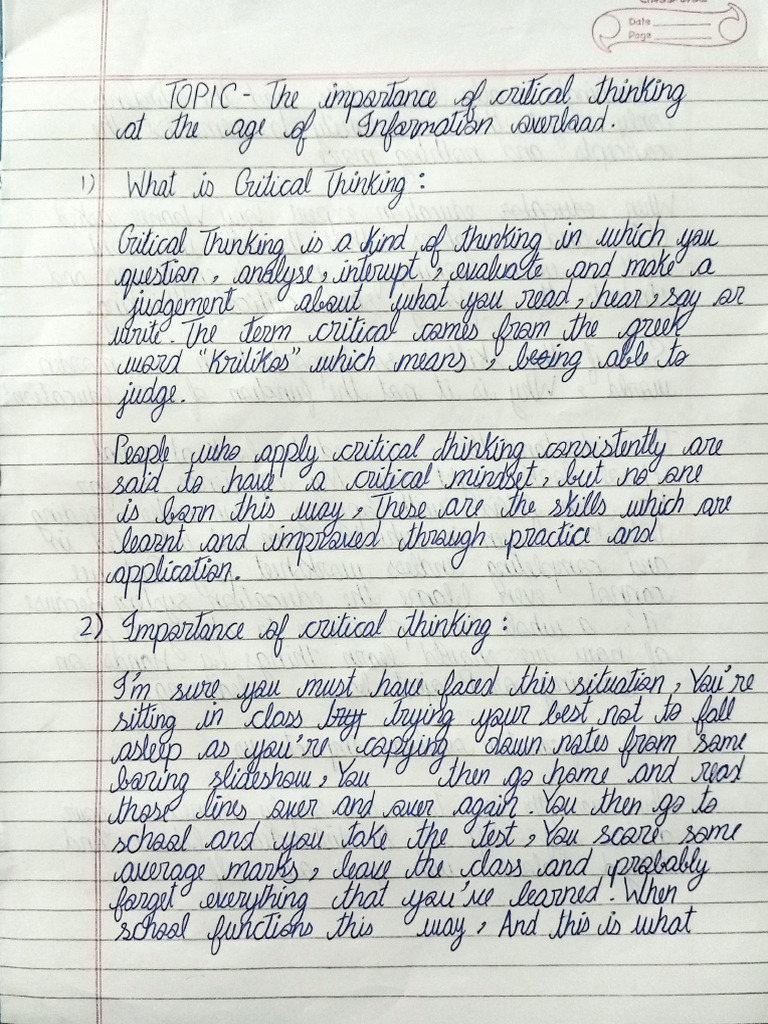 Date
Page
TOPIC - The importance of critical thinking
at the age of Information overload.
1) What is Critical Thinking :
Critical Thinking is a kind of thinking in which you
question, analyse, interupt, evaluate and make a
judgement about what you read, hear, say or
write. The term critical comes from the greek
word "Kritikos" which means, being able to
judge.
People who apply critical thinking consistently are
said to have a critical mindset, but no one
is born this way, These are the skills which are
learnt and improved through practice and
application.
2) Importance of critical thinking :
I'm sure you must have faced this situation, You're
sitting in class trying your best not to fall
asleep as you're copying down notes from some
boring slideshow, You then go home and read
those lines over and over again. You then go to
school and you take the test, You score some
average marks, leave the class and probably
forget everything that you've learned. When
school functions this way, And this is what